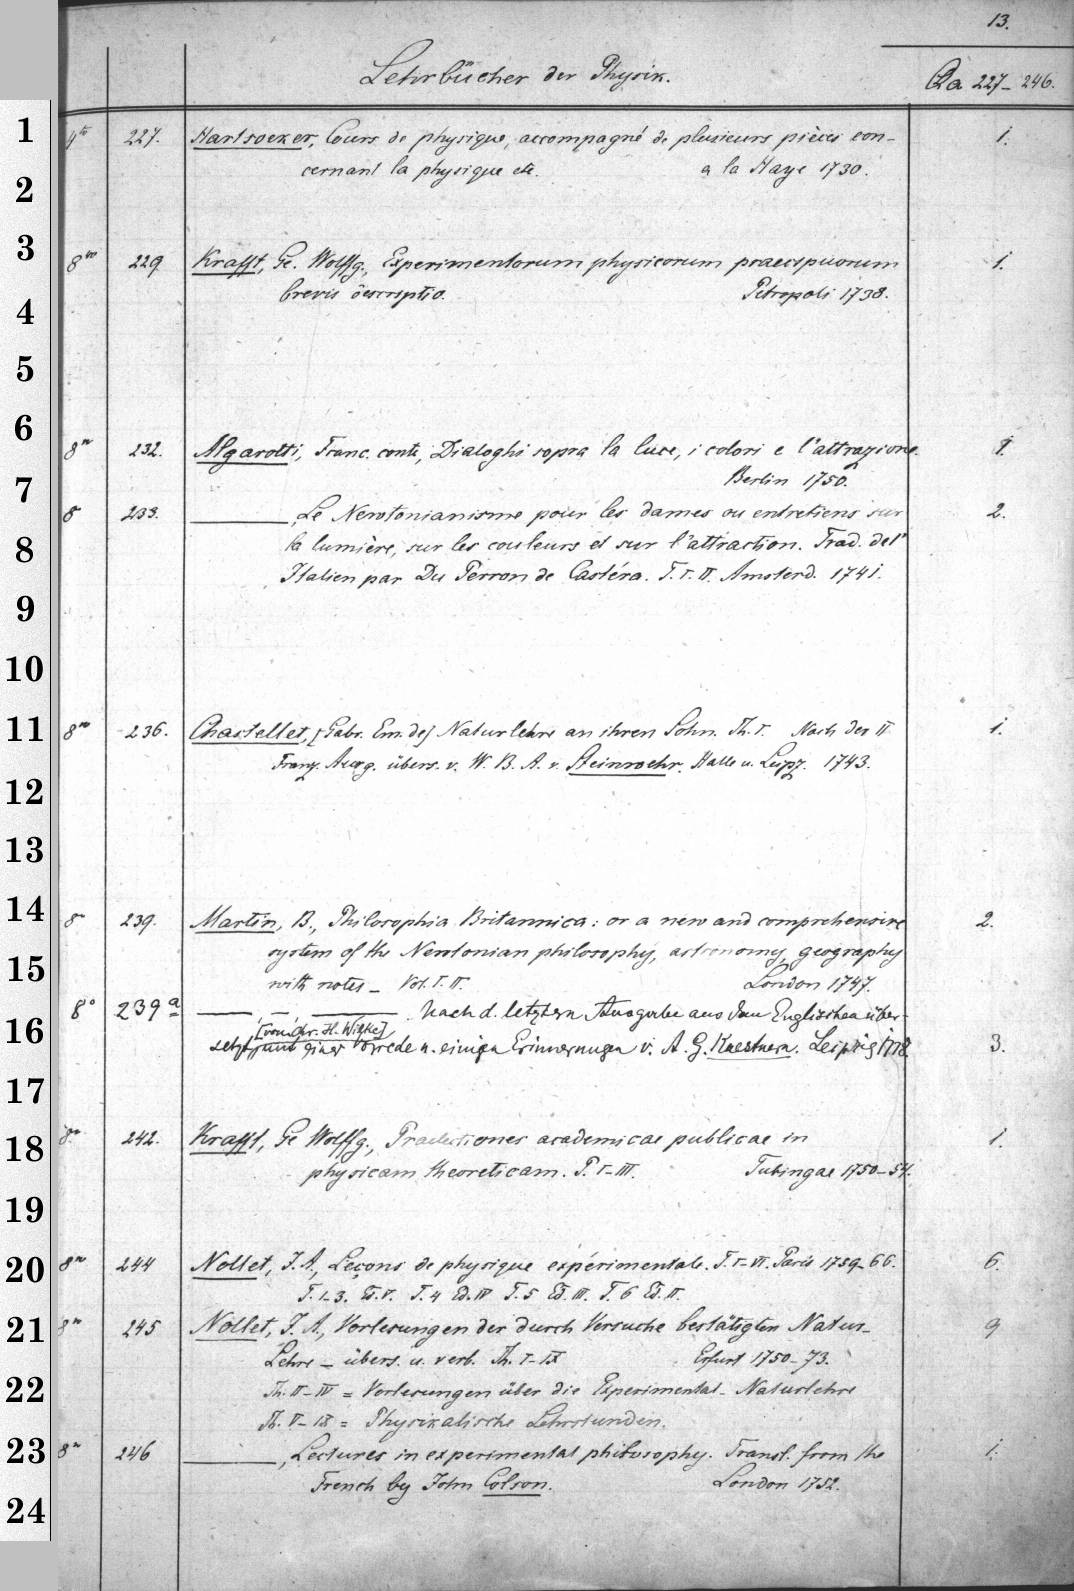 13.
Lehrbücher der Physik.
Qa 227-246.
1
4to 227. Hartsoeker, Cours de physique, accompagné de plusieurs pièces con- 1.
2
cernant la physique etc. a la Haye 1730.
3
8vo 229. Krafft, Ge. Wolffg., Experimentorum physicorum praecipuorum 1.
brevis descriptio. Petropoli 1738.
4
5
6
8vo 232. Algarotti, Franc. conte, Dialoghi sopra la luce, i colori e l'attrazione. 1.
Berlin 1750.
7
8 233. ——— , Le Newtonianisme pour les dames ou entretiens sur 2.
8
la lumière, sur les couleurs et sur l'attraction. Trad. de l'
Italien par Du Perron de Castéra. T. I. II. Amsterd. 1741.
9
10
11
8vo 236. Chastellet, [Gabr. Em. de] Naturlehre an ihren Sohn. Th. I. Nach der II
Franz. Ausg. übers. v. W. B. A. v. Steinwehr. Halle u. Leipz. 1743. 1.
12
13
14
8vo 239. Martin, B., Philosophia Britannica: or a new and comprehensive 2.
system of the Newtonian philosophy, astronomy, geography
15
with notes – Vol. I. II. London 1747.
8° 239a ——— , — , ——— . Nach d. letztern Ausgabe aus dem Englischen über-
16
[von Chr. H. Wilke]
setzt, mit einer Vorrede u. einigen Erinnerungen v. A. G. Kaestnern. Leipzig 1778. 3.
17
18
8vo 242. Krafft, Ge Wolffg., Praelectiones academicae publicae in 1.
physicam theoreticam. P. I-III. Tubingae 1750-54.
19
20
8vo 244 Nollet, J. A., Leçons de physique expérimentale. T. I-VI. Paris 1759-66. 6.
T. 1-3. Ed. V. T. 4 Ed. IV T. 5 Ed. III. T. 6 Ed. II.
21
8vo 245 Nollet, J. A., Vorlesungen der durch Versuche bestätigten Natur- 9
Lehre – übers. u. verb. Th. I-IX Erfurt 1750-73.
22
Th. II-IV = Vorlesungen über die Experimental-Naturlehre
Th. V-IX = Physikalische Lehrstunden.
23
8vo 246 ——— , Lectures in experimental philosophy. Transl. from the 1.
French by John Colson. London 1752.
24